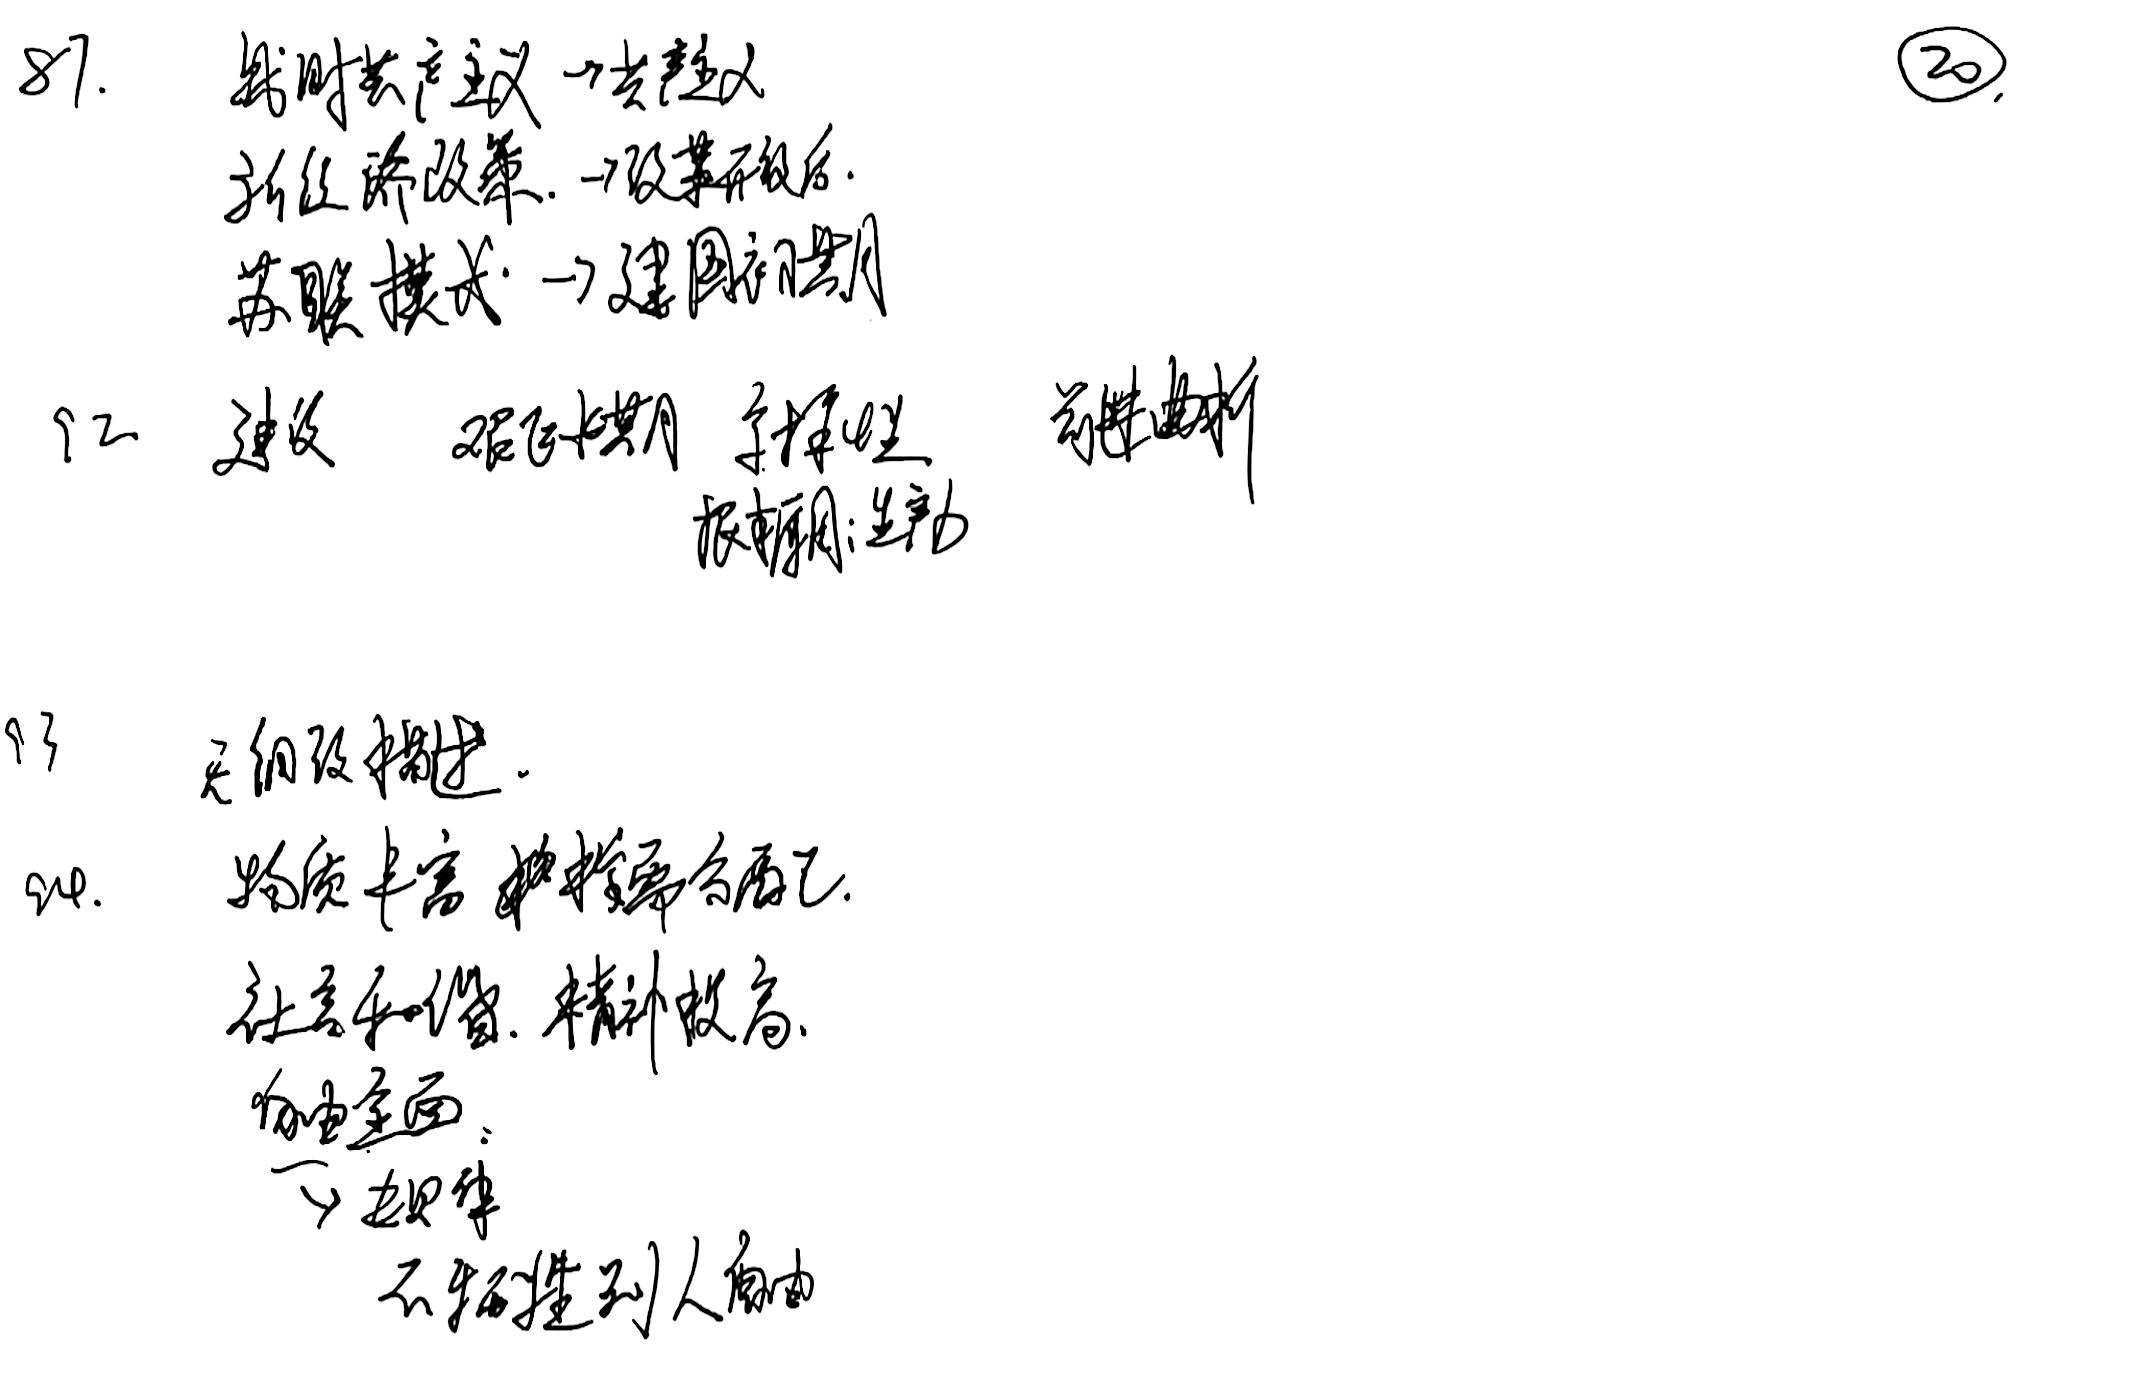 87. 战时共产主义 → 共产主义 20.
新经济政策. → 改革开放后.
苏联模式. → 建国初期
92 建设 艰巨长期 多样性 前进曲折
根本原因: 生产力
93 无细致描述.
94. 物质丰富 按需分配.
社会和谐. 精神极高.
自由全面:
→ 规律
不牺牲别人自由